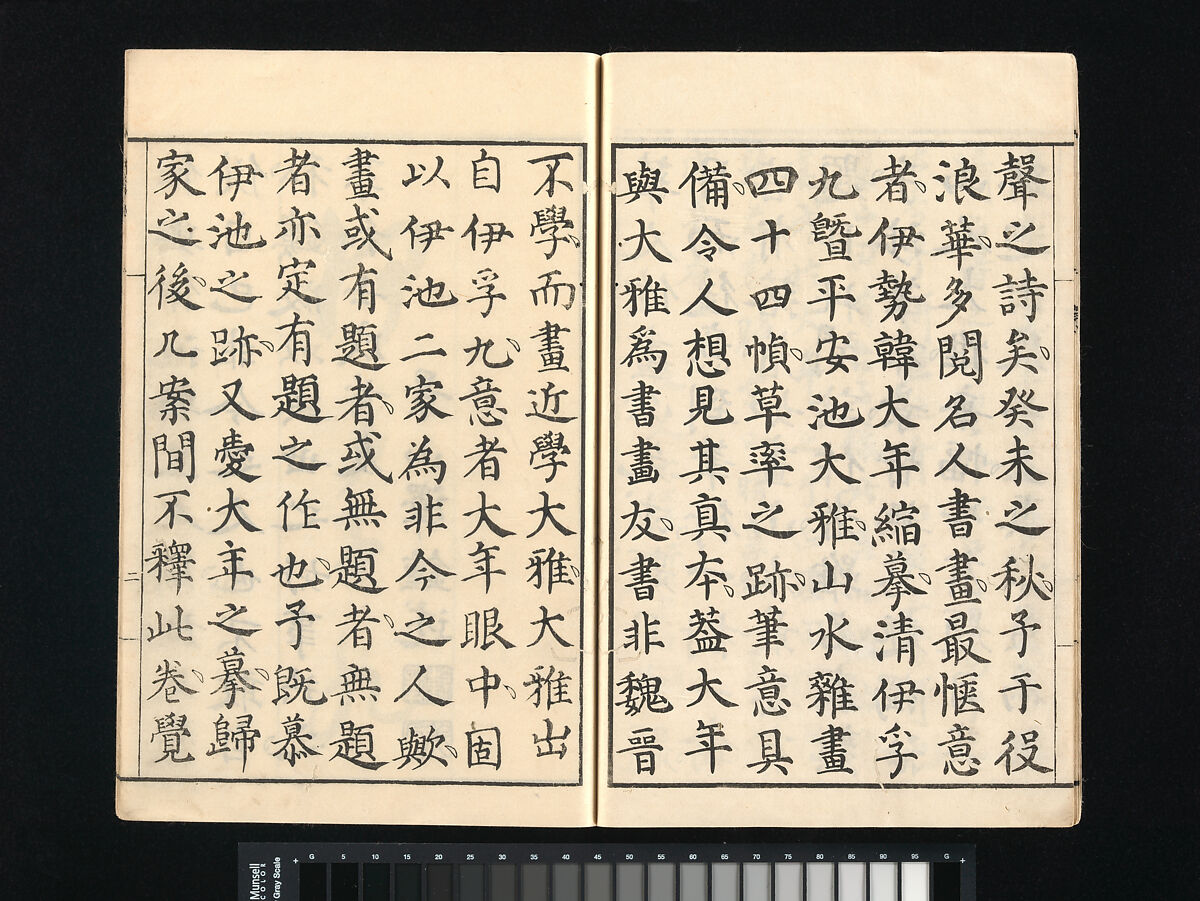 聲之詩矣、癸未之秋、予于役
浪華、多閱名人書畫、最愜意
者、伊勢韓大年縮摹、清伊孚
九曁平安池大雅、山水雜畫
四十四幀、草率之跡、筆意具
備、令人想見其真夲、葢大年
與大雅為書畫友、書非魏晋
不學、而畫近學大雅、大雅出
自伊孚九、意者大年眼中、固
以伊池二家為非今之人歟、
畫或有題者、或無題者、無題
者亦定有題之作也、予既慕
伊池之跡、又愛大年之摹、歸
家之後、几案間不釋此卷、覺
二
Munsell COLOR Gray Scale
G 5 10 15 20 25 30 35 40 45 50 55 60 65 70 75 80 85 90 95 G